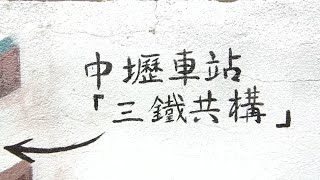 中壢車站
「三鐵共構」